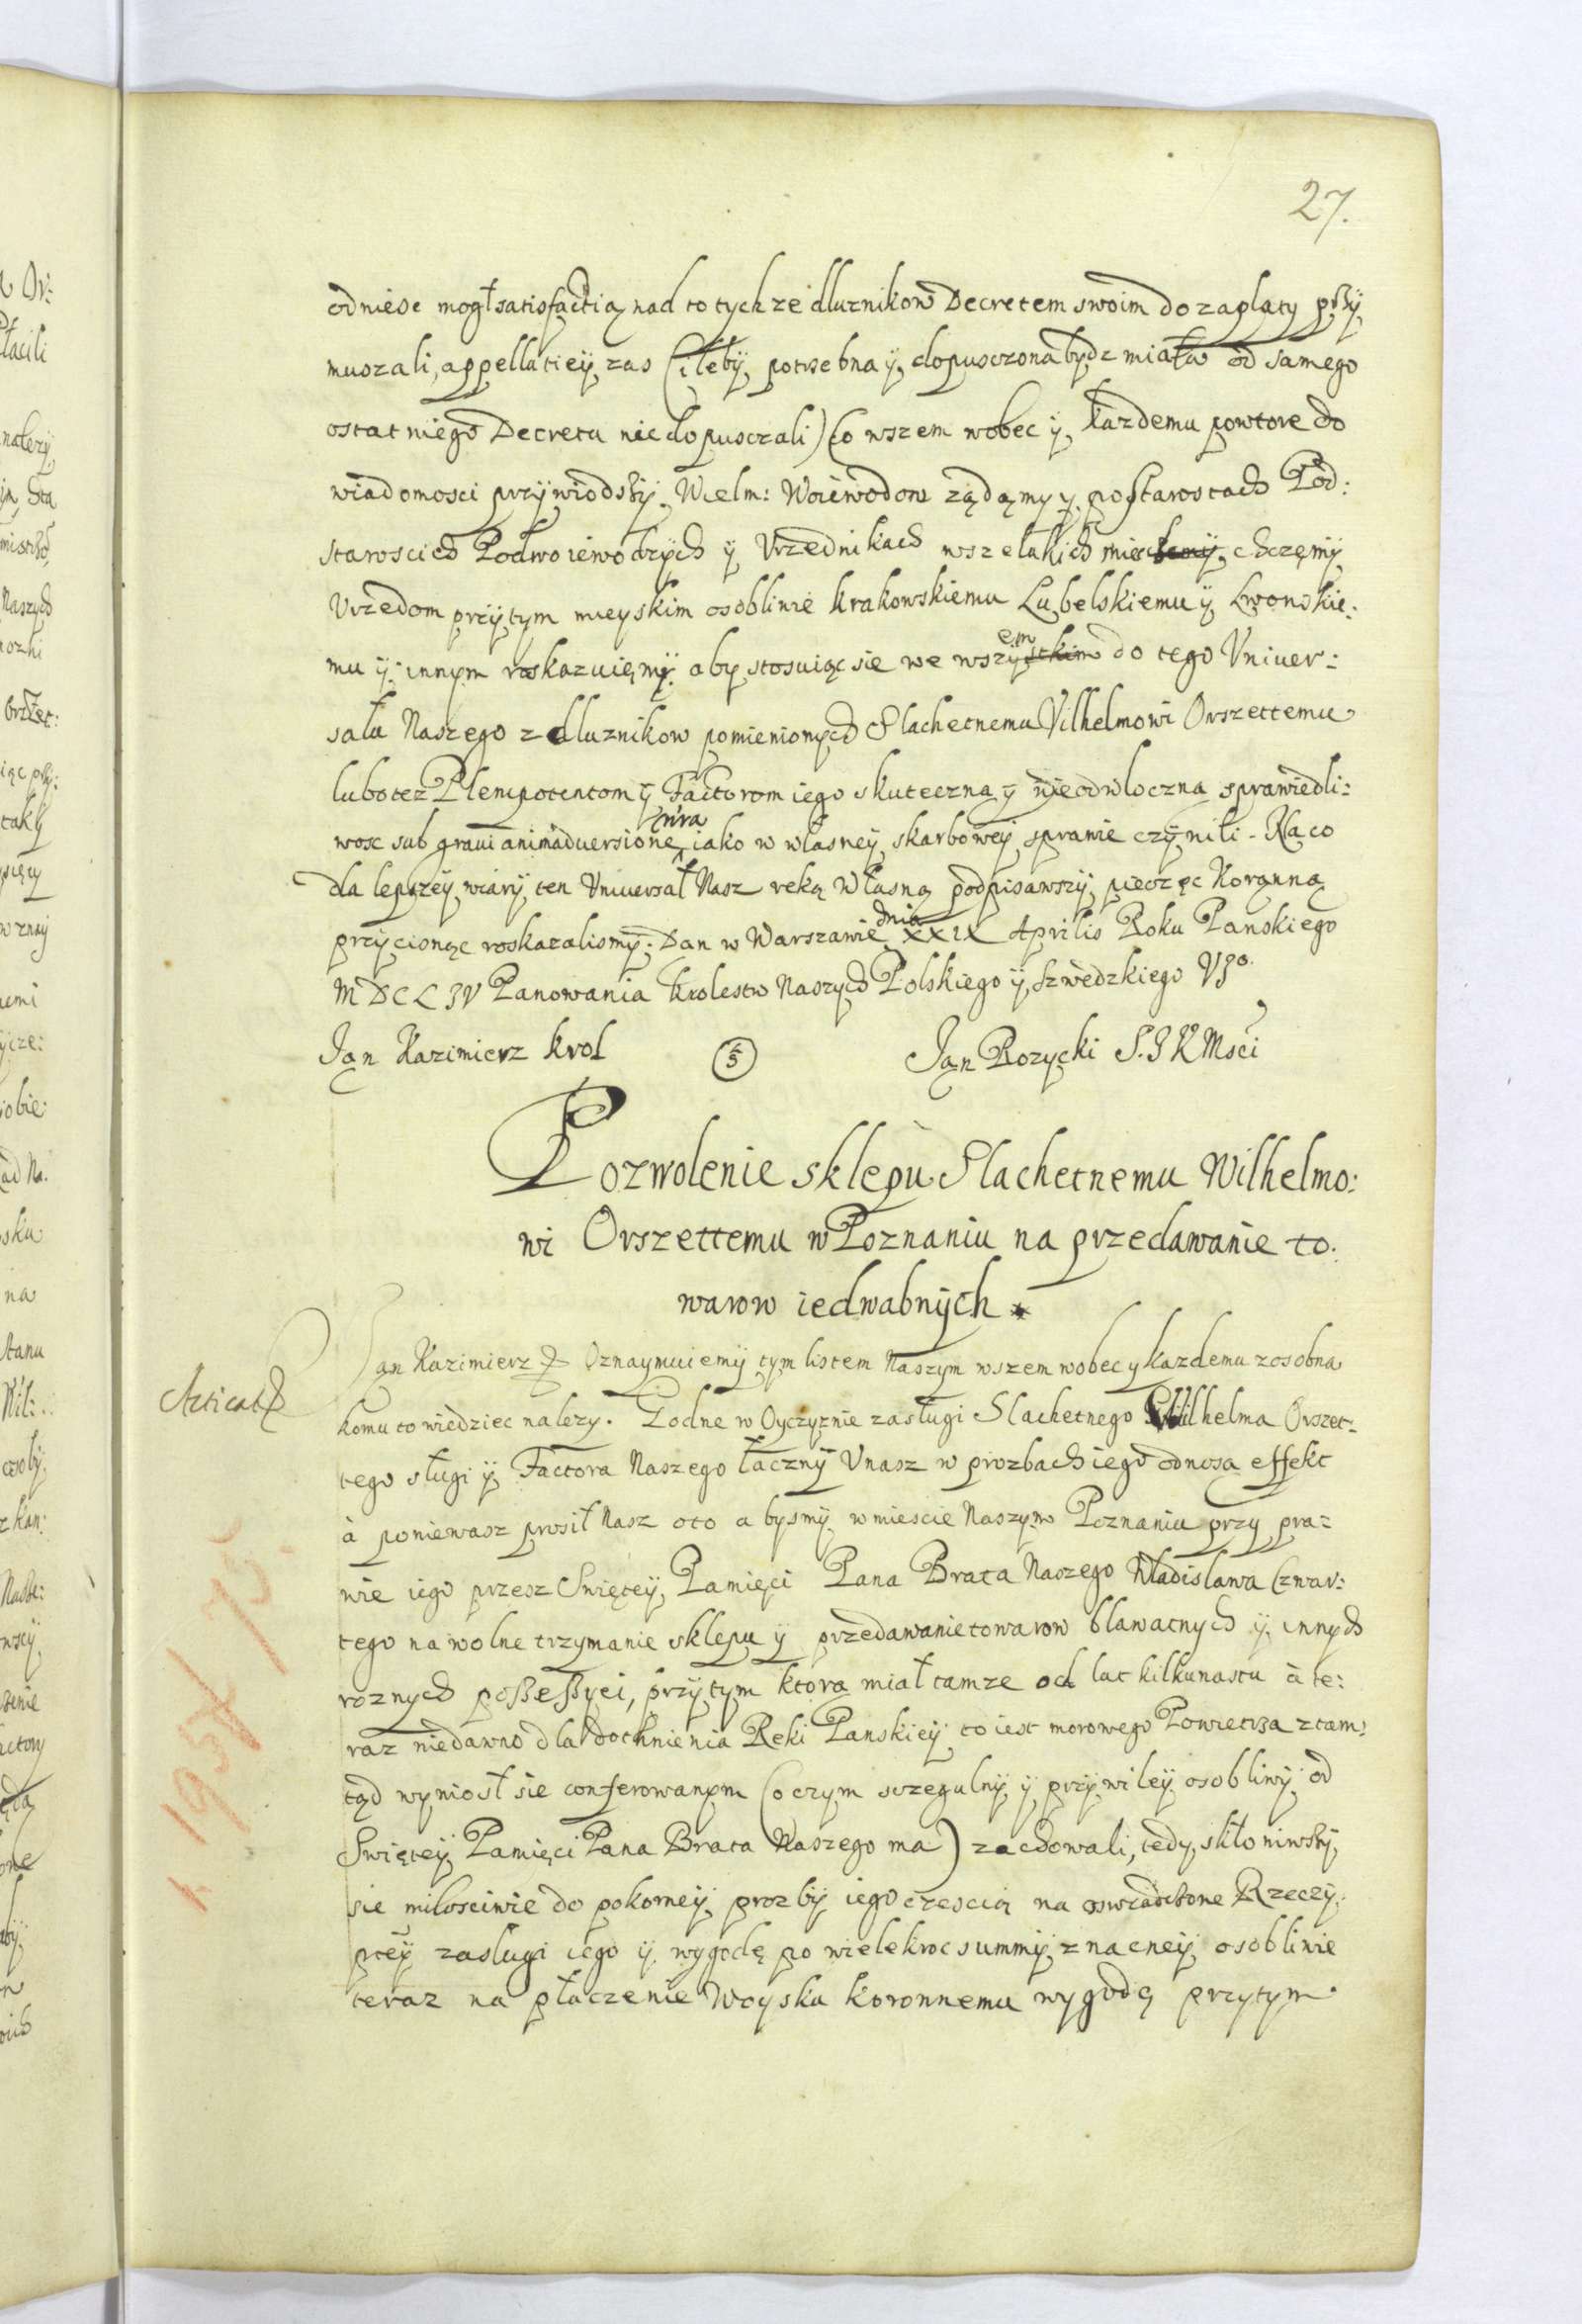 27.
odniesc mogł satisfactią nad to tychze dłuznikow Decretem swoim do zaplaty przÿ,
muszali, appellatieÿ zas (iłebÿ, potrzebna ÿ, dopusczona bÿdz miała od samego
ostatniego Decretu nie dopusczali) Co wszem wobec ÿ, kazdemu powtore do
wiadomosci przÿwiodszÿ, Wielm: Woiewodow ządąmy ÿ, po Starostach Pod:
staroscich Podwoiewodzych ÿ Vrzednikach wszelakich chczęmÿ,
Vrzedom przÿ tym mieyskim osobliwie krakowskiemu Lubelskiemu ÿ, Lwowskie:
mu ÿ, innym roskazuięmÿ, aby stosuiąc sie we wszÿstkim em do tego Vniuer:
sału Naszego z dluznikow pomienionych Slachetnemu Vilhelmowi Orszettemu
lubo tez Plenipotentom ÿ Factorom iego skuteczną ÿ nieodwłoczną sprawiedli:
wosc sub graui animaduersione nra iako w własneÿ skarboweÿ sprawie czÿnili. Na co
dla lepszeÿ wiarÿ, ten Vniuersał Nasz reką własną podpisawszÿ, pieczęc Koranną
przÿcisnąc roskazalismÿ. Dan w Warszawie dnia XXIX Aprilis Roku Panskiego
MDCLIV Panowania krolestw Naszych Polskiego ÿ, Szwedzkiego VIo.
Ian Kazimierz krol
Ian Rozycki S. I K Msci
Pozwolenie sklepu Slachetnemu Wilhelmo:
wi Orszettemu w Poznaniu na przedawanie to:
warow iedwabnÿch
Ian Kazimierz Oznaymuiemÿ tym listem Naszym wszem wobec y kazdemu zosobna
komu to wiedziec nalezy. Godne w Oyczyznie zasługi Slachetnego Wilhelma Orszet:
tego sługi ÿ, Factora Naszego łacznÿ Vnasz w prozbach iego odnosą effekt
à poniewasz prosił Nasz oto abysmÿ w miescie Naszym Poznaniu przy pra:
wie iego przesz Swięteÿ, Pamięci Pana Brata Naszego Władislawa Czwar:
tego na wolne trzymanie sklepu ÿ przedawanie towarow bławatnych ÿ, innych
roznych possessyei, przÿ tym ktorą miał tamze od lat kilkunastu à te:
raz niedawno dla dotknienia Reki Panskieÿ to iest morowego Powietrza ztam:
tąd wyniosł sie conferowanym (o czym sczegulnÿ ÿ przÿwileÿ osobliwÿ od
Swięteÿ Pamięci Pana Brata Naszego ma) zachowali, tedy, skłoniwszÿ,
sie miłosciwie do pokorneÿ, prozbÿ iego czescią na oswiadczone Rzeczÿ,
pteÿ zaslugi iego ÿ, wygodę po wielekroc summÿ, znacneÿ, osobliwie
teraz na płaczenie Woysku koronnemu wygodę przytym